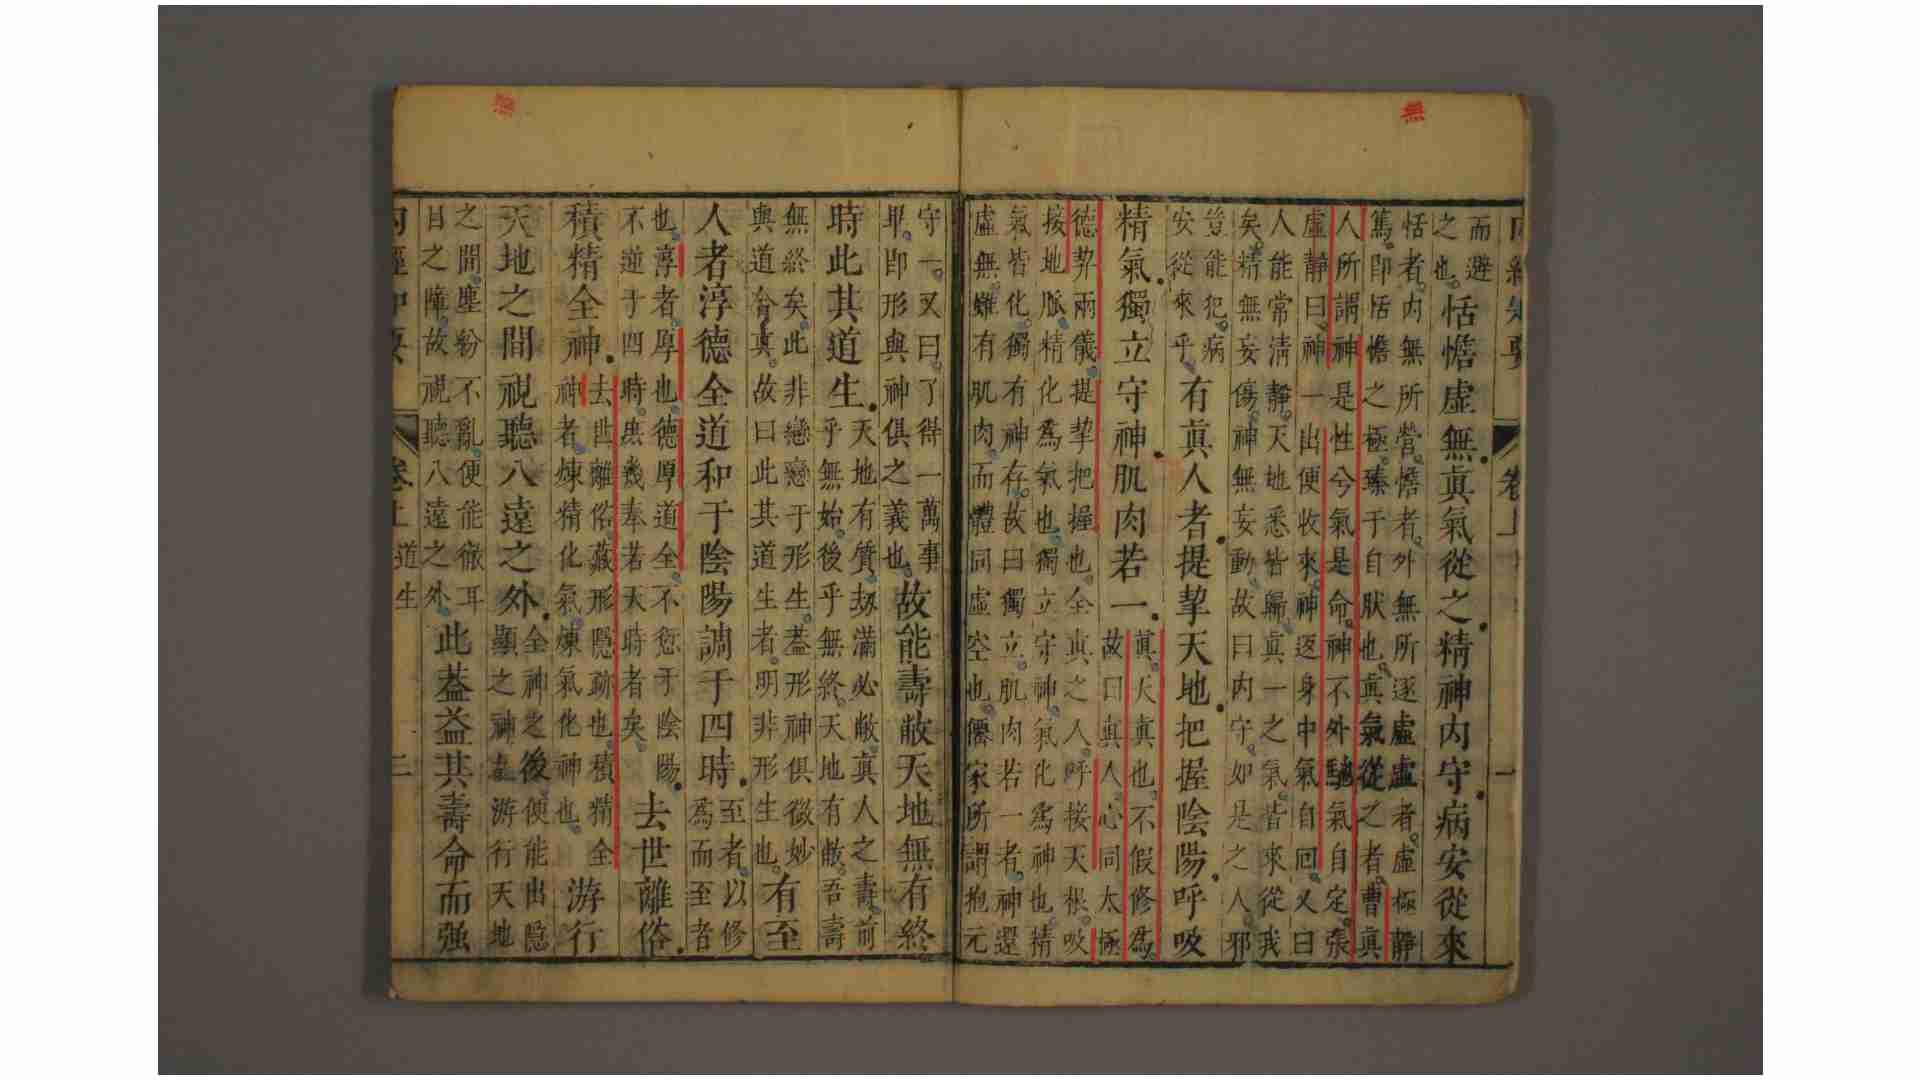 無
無
內經知要 卷上 一
而避
之也。
恬憺虛無眞氣從之精神內守病安從來
恬者。內無所營。憺者。外無所逐。虛虛者。虛極靜
篤。卽恬憺之極。臻于自肰也。眞氣從之者。曹眞
人所謂神是性兮氣是命。神不外馳氣自定。張
虛靜曰。神一出便收來。神返身中氣自回。又曰
人能常清靜。天地悉皆歸。眞一之氣。皆來從我
矣。精無妄傷。神無妄動。故曰內守。如是之人。邪
豈能犯。病
安從來乎。
有眞人者提挈天地把握陰陽呼吸
精氣獨立守神肌肉若一
眞。大眞也。不假修爲。
故曰眞人。心同太極
德契兩儀。提挈把握也。全眞之人。呼接天根。吸
接地脈。精化爲氣也。獨立守神。氣化爲神也。精
氣皆化。獨有神存。故曰獨立。肌肉若一者。神還
虛無。雖有肌肉。而體同虛空也。僊家所謂抱元
守一。又曰。了得一萬事
畢。卽形與神俱之義也。
故能壽敝天地無有終
時此其道生
天地有質。劫滿必敝。眞人之壽。前
乎無始。後乎無終。天地有敝。吾壽
無終矣。此非戀戀于形生。蓋形神俱微妙
與道合眞。故曰此其道生者。明非形生也。
有至
人者淳德全道和于陰陽調于四時
至者。以修
爲而至者
也。淳者。厚也。德厚道全。不愆于陰陽。
不逆于四時。庶幾奉若天時者矣。
去世離俗
積精全神
去世離俗。藏形隱跡也。積精全
神者。煉精化氣。煉氣化神也。
游行
天地之間視聽八遠之外
全神之後。便能出隱
顯之神。故游行天地
之間。塵紛不亂。便能徹耳
目之障。故視聽八遠之外。
此蓋益其壽命而强
內經知要 卷上 道生 二